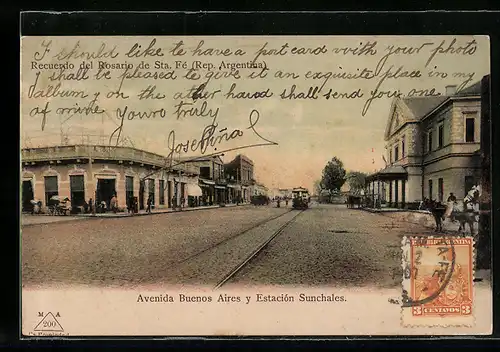 I should like to have a post card with your photo
Recuerdo del Rosario de Sta. Fé (Rep. Argentina)
I shall be pleased to give it an exquisite place in my
album on the other hand shall send you fex
of mine yours truly
Josefina
Avenida Buenos Aires y Estación Sunchales.
M A
200
3 CENTAVOS 3